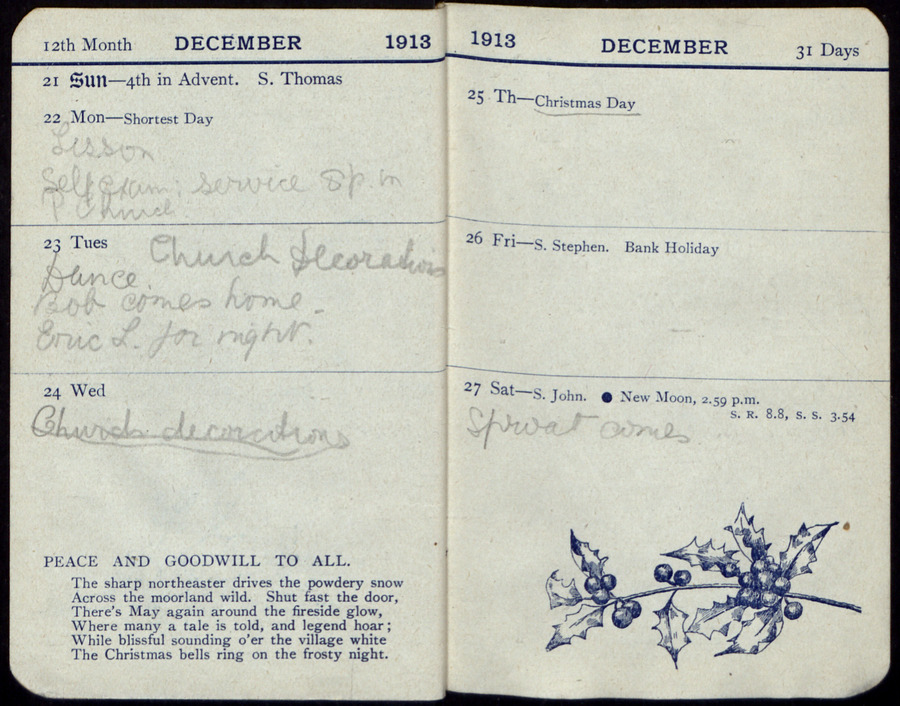 12th Month DECEMBER 1913
21 Sun—4th in Advent. S. Thomas
22 Mon—Shortest Day
Lisson
Self Exam; service Sp. in
P Church
23 Tues Church Decorations
Dance.
Bob comes home.
Eric L. for night.
24 Wed
Church decorations
PEACE AND GOODWILL TO ALL.
The sharp northeaster drives the powdery snow
Across the moorland wild. Shut fast the door,
There's May again around the fireside glow,
Where many a tale is told, and legend hoar;
While blissful sounding o'er the village white
The Christmas bells ring on the frosty night.
1913 DECEMBER 31 Days
25 Th—Christmas Day
26 Fri—S. Stephen. Bank Holiday
27 Sat—S. John. ● New Moon, 2.59 p.m.
S. R. 8.8, S. S. 3.54
Sprwat comes